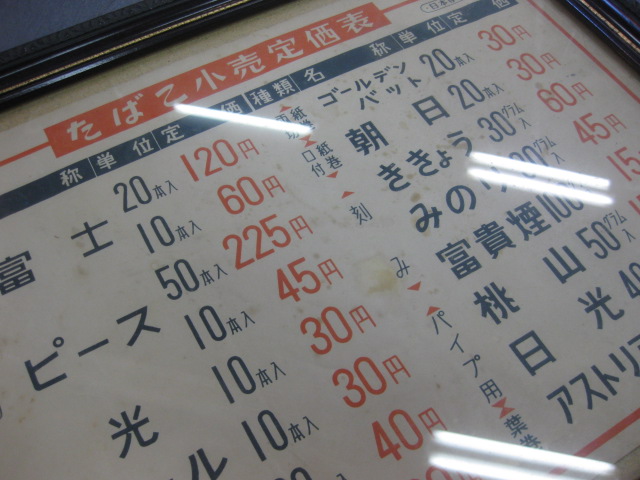 たばこ小売定価表
称 単位 定価 種類 名称 単位 定価
富士 20本入 120円
10本入 60円
ピース 50本入 225円
10本入 45円
光 10本入 30円
10本入 30円
ル 10本入 40円
両切 紙
口付 紙巻
ゴールデンバット 20本入 30円
朝日 20本入 30円
刻み
ききょう 30グラム入 60円
みのり 45円
富貴煙 100
パイプ用
桃山 50グラム入
日光
葉巻
アストリア